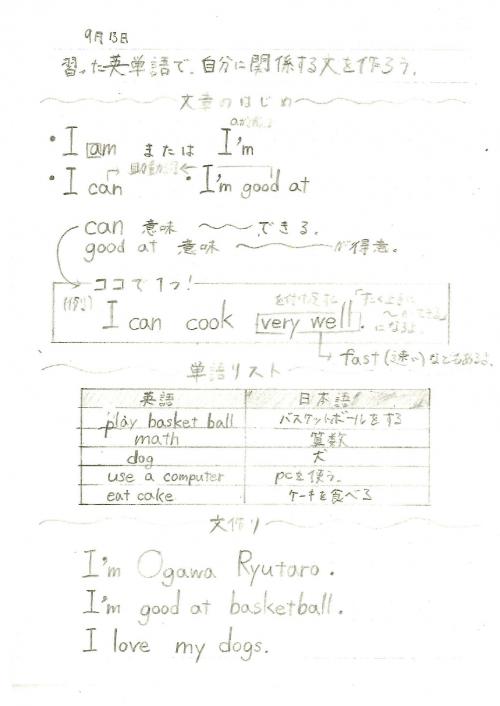 9月13日
習った英単語で、自分に関係する文を作ろう。
文章のはじめ
・I am または I'm
・I can ・I'm good at
can 意味 〜〜できる。
good at 意味 〜〜が得意。
ココで1つ!
(例)
I can cook very well.
を付け足すと
fast (速い)などもあるよ。
単語リスト
英語 日本語
play basket ball バスケットボールをする
math 算数
dog 犬
use a computer pcを使う。
eat cake ケーキを食べる
文作り
I'm Ogawa Ryutaro.
I'm good at basketball.
I love my dogs.